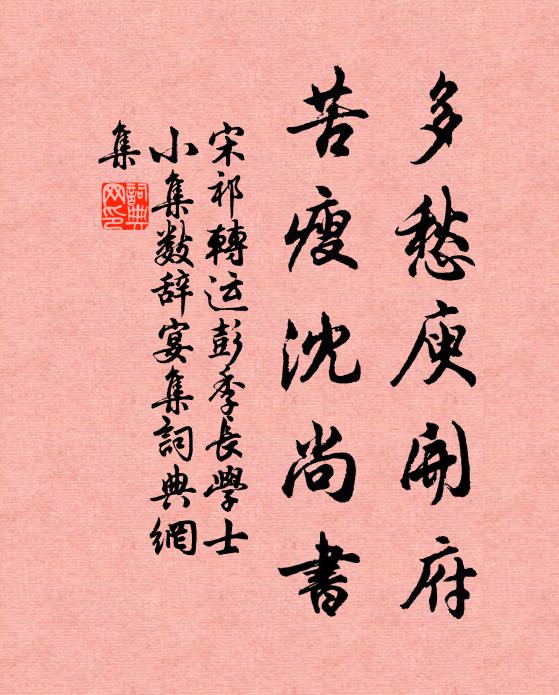 多愁庾開府
苦瘦沈尚書
宋祁轉运彭季長學士
小集数辞宴集詞典網
集
詞典
网印